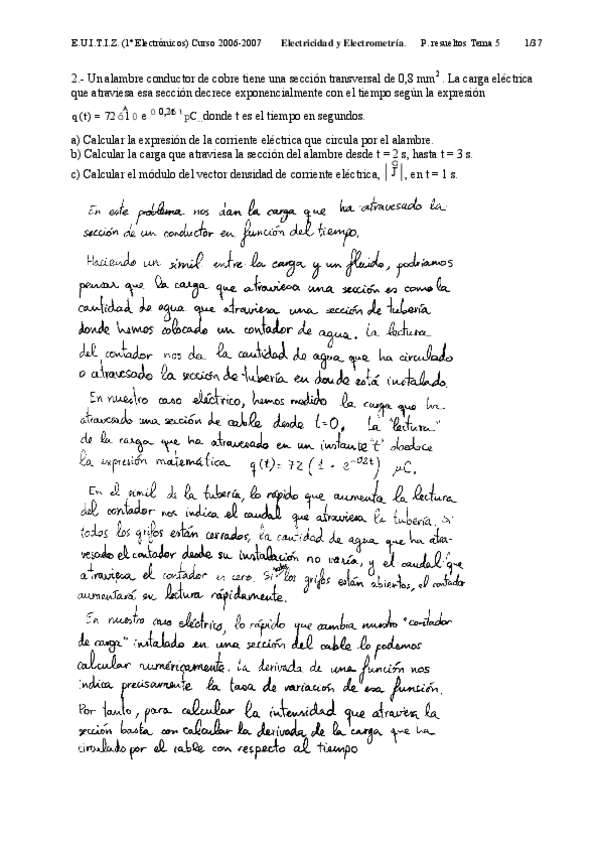 E.U.I.T.I.Z. (1º Electrónicos) Curso 2006-2007 Electricidad y Electrometría. P. resueltos Tema 5 1/37
2.- Un alambre conductor de cobre tiene una sección transversal de 0,8 mm². La carga eléctrica
que atraviesa esa sección decrece exponencialmente con el tiempo según la expresión
q(t) = 72 donde t es el tiempo en segundos.
a) Calcular la expresión de la corriente eléctrica que circula por el alambre.
b) Calcular la carga que atraviesa la sección del alambre desde t = 2 s, hasta t = 3 s.
c) Calcular el módulo del vector densidad de corriente eléctrica, |J|, en t = 1 s.
En este problema nos dan la carga que ha atravesado la
sección de un conductor en función del tiempo.
Haciendo un simil entre la carga y un fluido, podríamos
pensar que la carga que atraviesa una sección es como la
cantidad de agua que atraviesa una sección de tubería
donde hemos colocado un contador de agua. La lectura
del contador nos da la cantidad de agua que ha circulado
o atravesado la sección de tubería en donde está instalado.
En nuestro caso eléctrico, hemos medido la carga que ha
atravesado una sección de cable desde t=0. La "lectura"
de la carga que ha atravesado en un instante "t" obedece
la expresión matemática q(t)= 72 (1 - e^-0.2t) µC.
En el simil de la tubería, lo rápido que aumenta la lectura
del contador nos indica el caudal que atraviesa la tubería. Si
todos los grifos están cerrados, la cantidad de agua que ha atra-
vesado el contador desde su instalación no varía, y el caudal que
atraviesa el contador es cero. Si todos los grifos están abiertos, el contador
aumentará su lectura rápidamente.
En nuestro caso eléctrico, lo rápido que cambia nuestro "contador
de carga" instalado en una sección del cable lo podemos
calcular numéricamente. La derivada de una función nos
indica precisamente la tasa de variación de esa función.
Por tanto, para calcular la intensidad que atraviesa la
sección basta con calcular la derivada de la carga que ha
circulado por el cable con respecto al tiempo